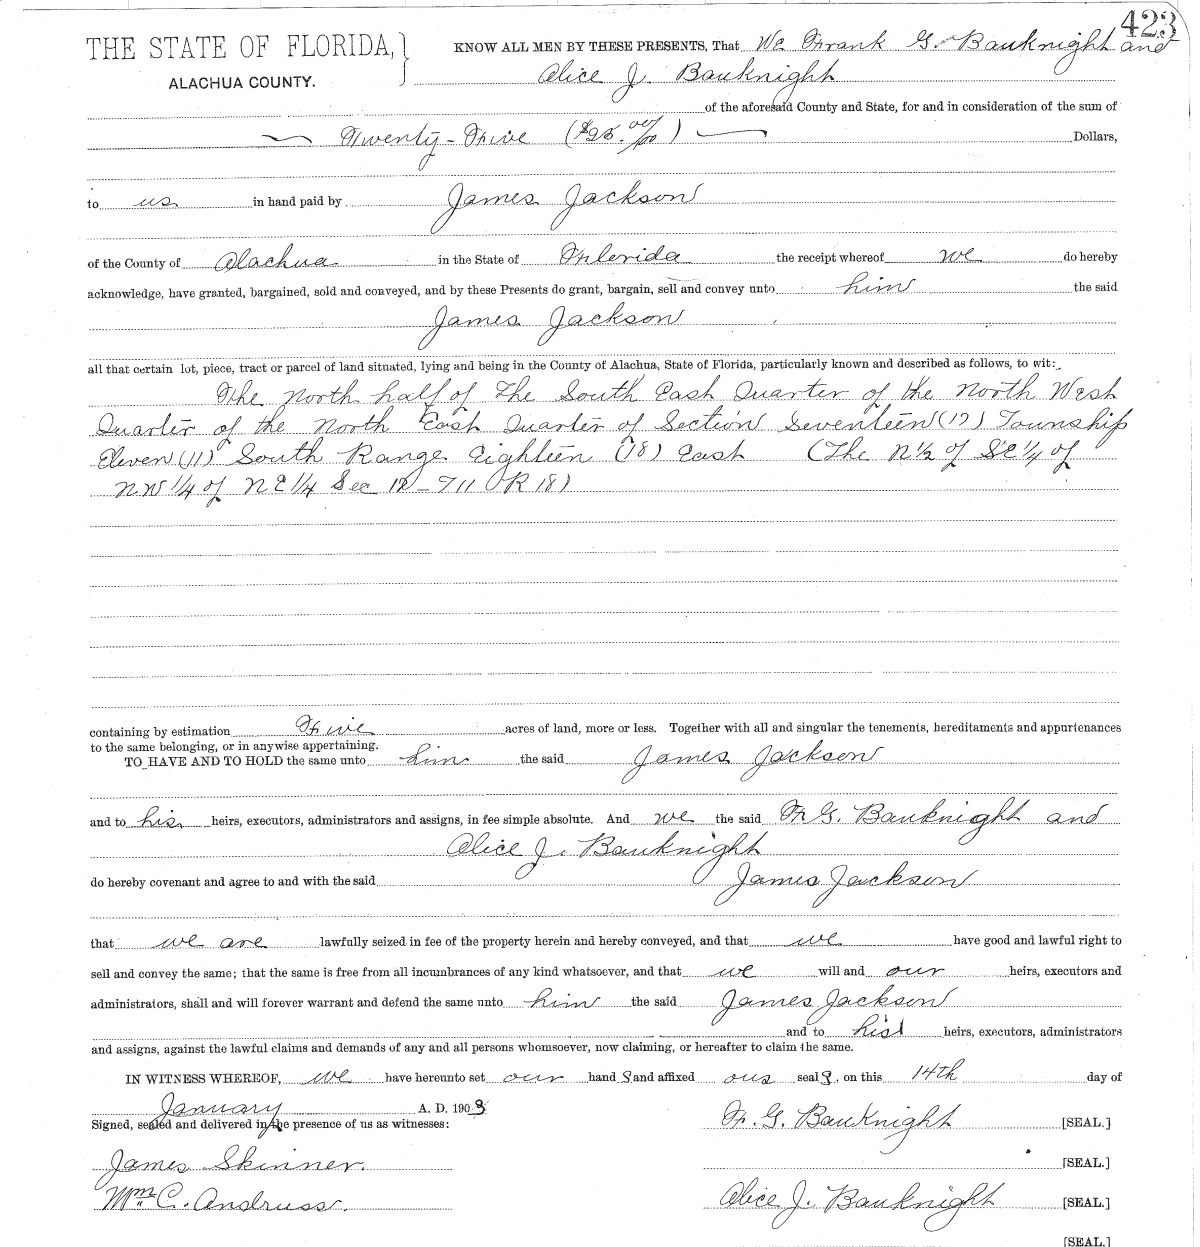 423
THE STATE OF FLORIDA, } KNOW ALL MEN BY THESE PRESENTS, That We Frank G. Bauknight and
ALACHUA COUNTY. Alice J. Bauknight
of the aforesaid County and State, for and in consideration of the sum of
Twenty-Five ($25.00/100) Dollars,
to us in hand paid by James Jackson
of the County of Alachua in the State of Florida the receipt whereof we do hereby
acknowledge, have granted, bargained, sold and conveyed, and by these Presents do grant, bargain, sell and convey unto him the said
James Jackson
all that certain lot, piece, tract or parcel of land situated, lying and being in the County of Alachua, State of Florida, particularly known and described as follows, to wit:
The North half of The South East Quarter of the North West
Quarter of the North East Quarter of Section Seventeen (17) Township
Eleven (11) South Range Eighteen (18) East (The N½ of SE¼ of
NW ¼ of NE ¼ Sec - T11 R 18)
containing by estimation Five acres of land, more or less. Together with all and singular the tenements, hereditaments and appurtenances
to the same belonging, or in anywise appertaining.
TO HAVE AND TO HOLD the same unto him the said James Jackson
and to his heirs, executors, administrators and assigns, in fee simple absolute. And we the said F. G. Bauknight and
Alice J. Bauknight
do hereby covenant and agree to and with the said James Jackson
that we are lawfully seized in fee of the property herein and hereby conveyed, and that we have good and lawful right to
sell and convey the same; that the same is free from all incumbrances of any kind whatsoever, and that we will and our heirs, executors and
administrators, shall and will forever warrant and defend the same unto him the said James Jackson
and to his heirs, executors, administrators
and assigns, against the lawful claims and demands of any and all persons whomsoever, now claiming, or hereafter to claim the same.
IN WITNESS WHEREOF, we have hereunto set our hand s and affixed our seal s, on this 14th day of
January A. D. 1903
Signed, sealed and delivered in the presence of us as witnesses: F. G. Bauknight [SEAL.]
James Skinner. [SEAL.]
Wm C. Andruss. Alice J. Bauknight [SEAL.]
[SEAL.]